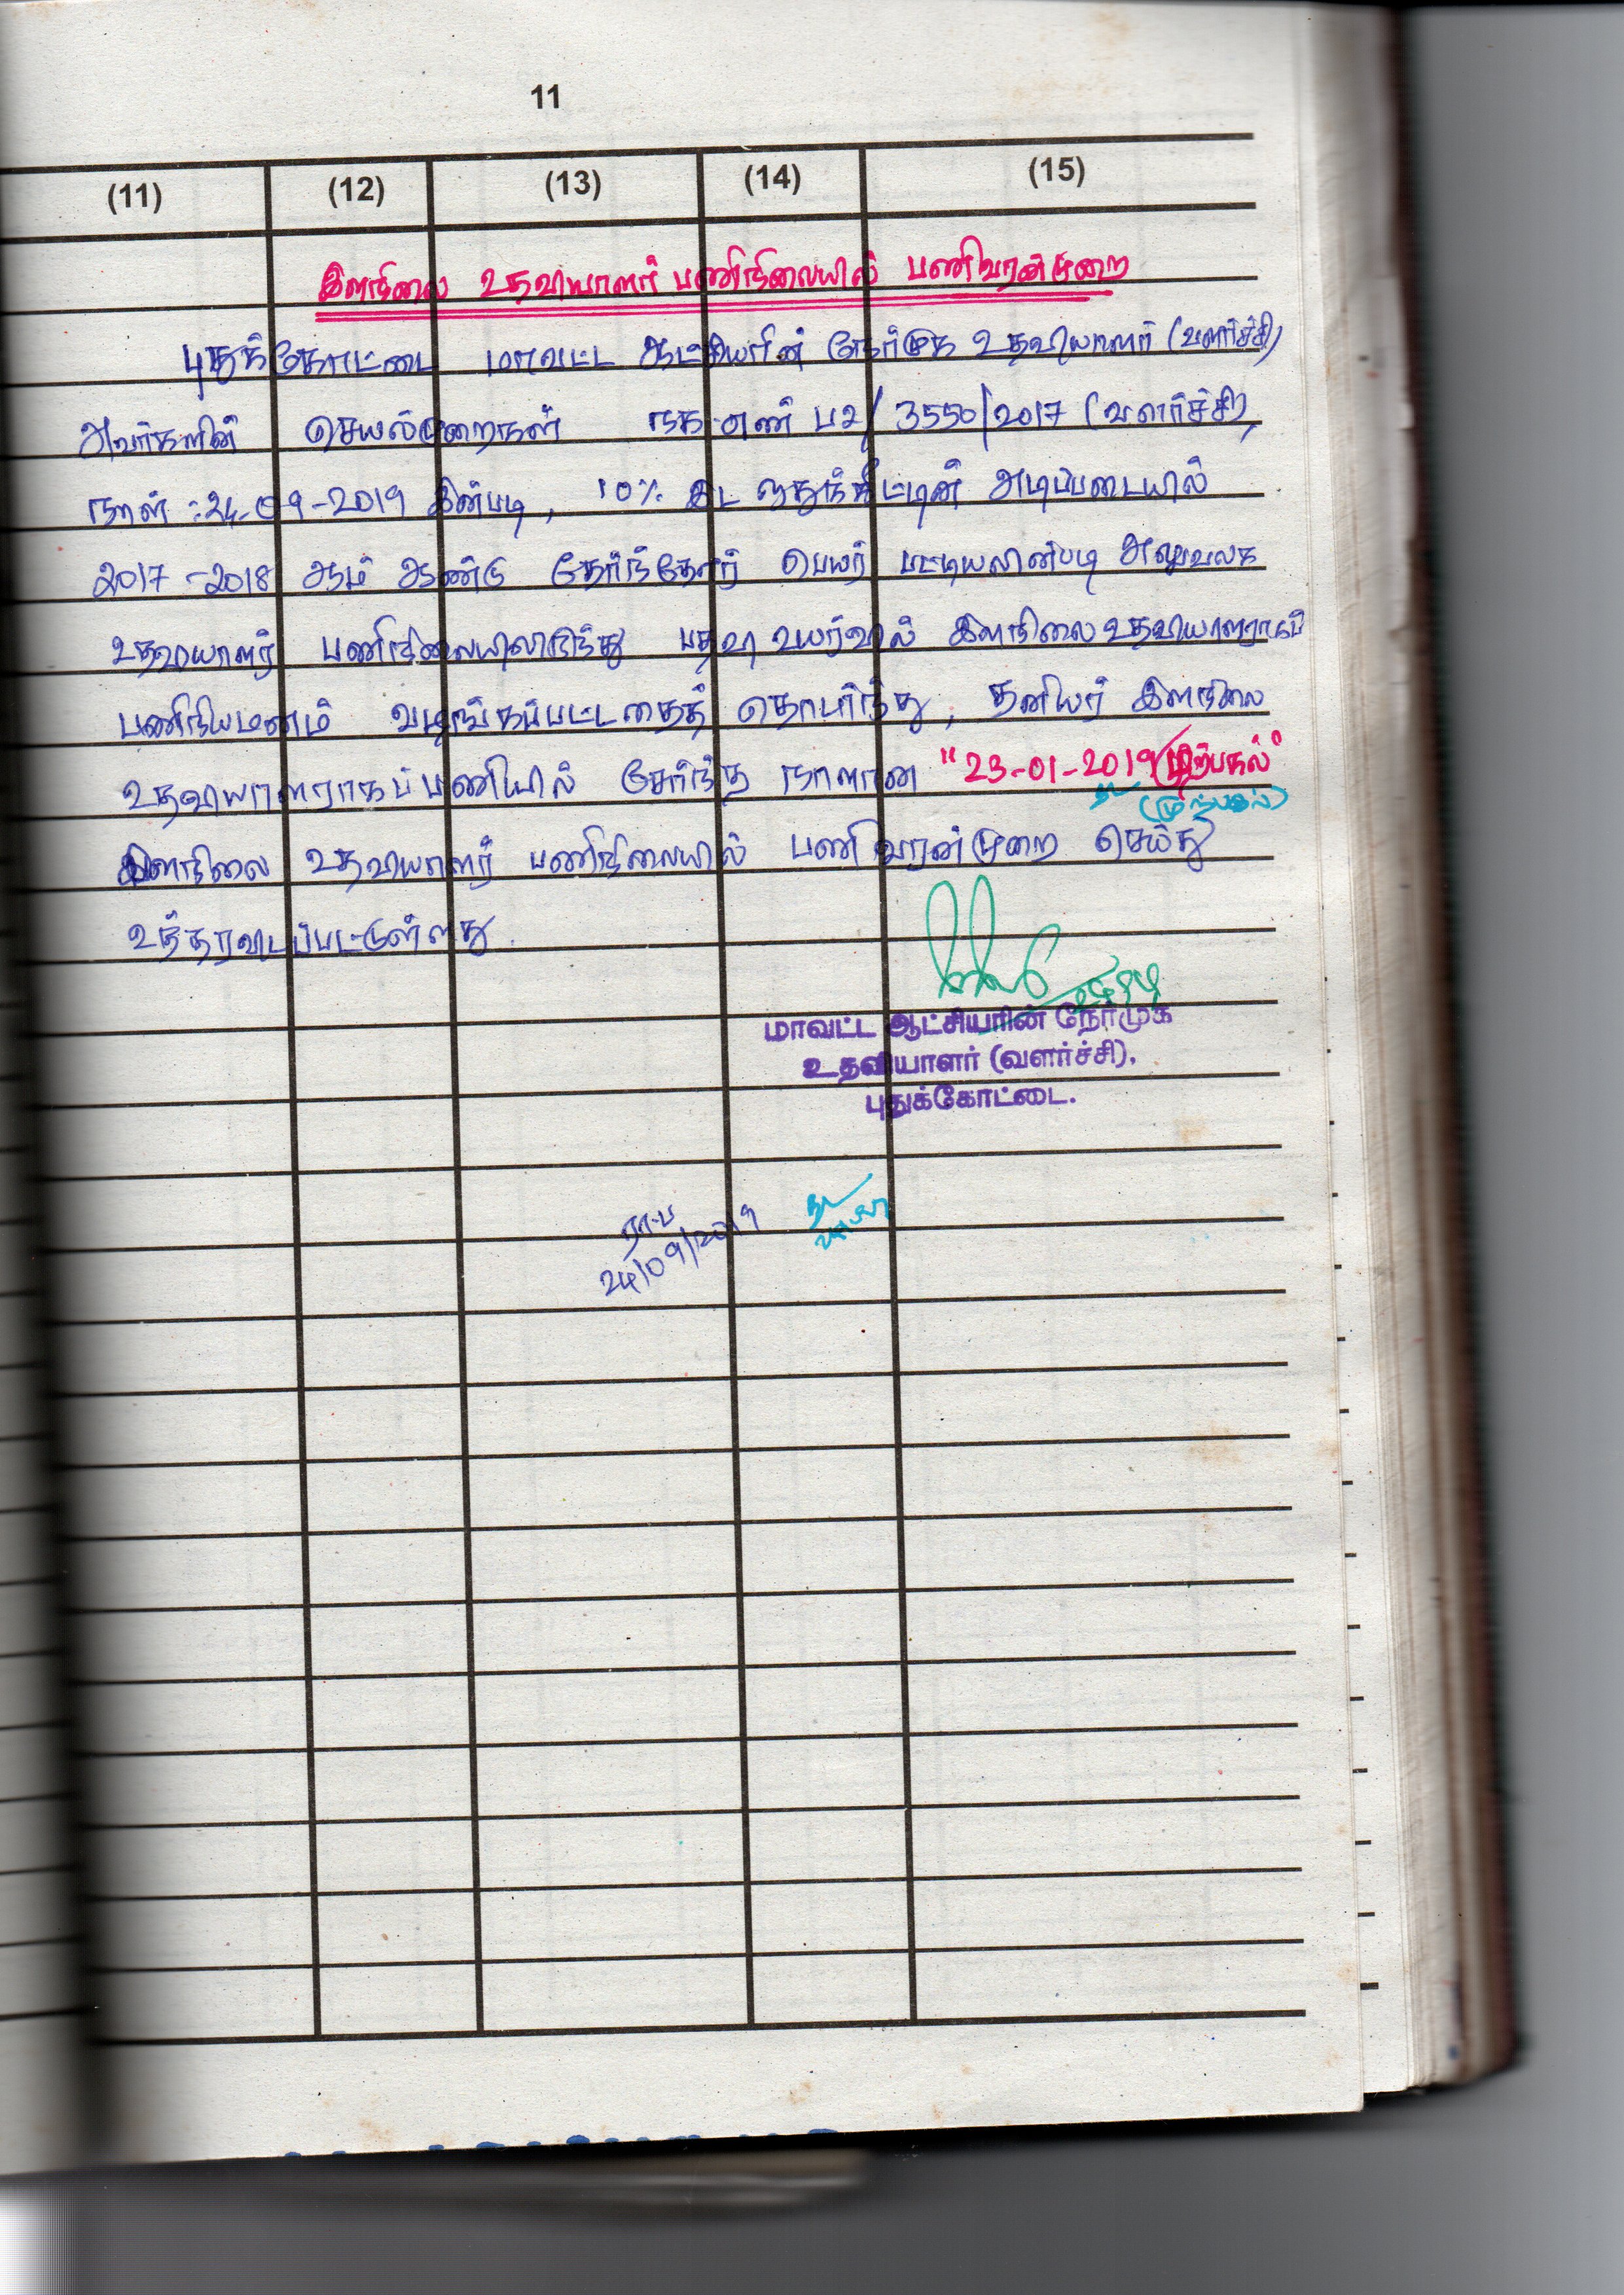 11
(11) (12) (13) (14) (15)
இளநிலை உதவியாளர் பணிநிலையில் பணிவரன்முறை
புதுக்கோட்டை மாவட்ட ஆட்சியரின் நேர்முக உதவியாளர் (வளர்ச்சி)
அவர்களின் செயல்முறைகள் ந.க.எண் ப2/3550/2017 (வளர்ச்சி),
நாள் :24-09-2019 இன்படி, 10% இட ஒதுக்கீட்டின் அடிப்படையில்
2017-2018 ஆம் ஆண்டு தேர்ந்தோர் பெயர் பட்டியலின்படி அலுவலக
உதவியாளர் பணிநிலையிலிருந்து பதவி உயர்வில் இளநிலை உதவியாளராகப்
பணிநியமனம் வழங்கப்பட்டதைத் தொடர்ந்து, தனியர் இளநிலை
உதவியாளராகப் பணியில் சேர்ந்த நாளான "23-01-2019 பிற்பகல்"
(முற்பகல்)
இளநிலை உதவியாளர் பணிநிலையில் பணிவரன்முறை செய்து
உத்தரவிடப்பட்டுள்ளது.
மாவட்ட ஆட்சியரின் நேர்முக
உதவியாளர் (வளர்ச்சி),
புதுக்கோட்டை.
24/09/2019